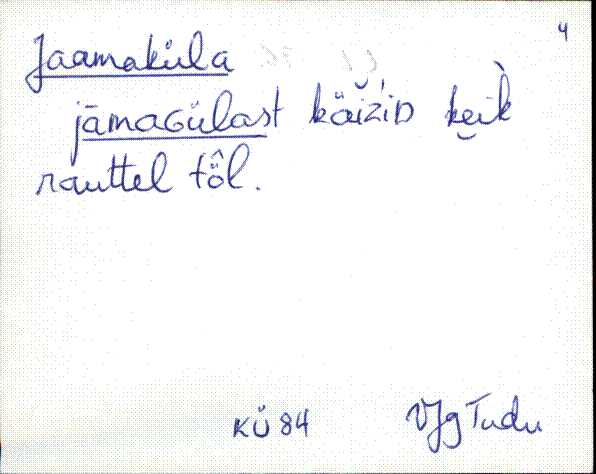 4
Jaamaküla
jāmaGülast käiz̆iD kei̮k̀
rauttel tö̂l.
KÜ 84 VJg Tudu